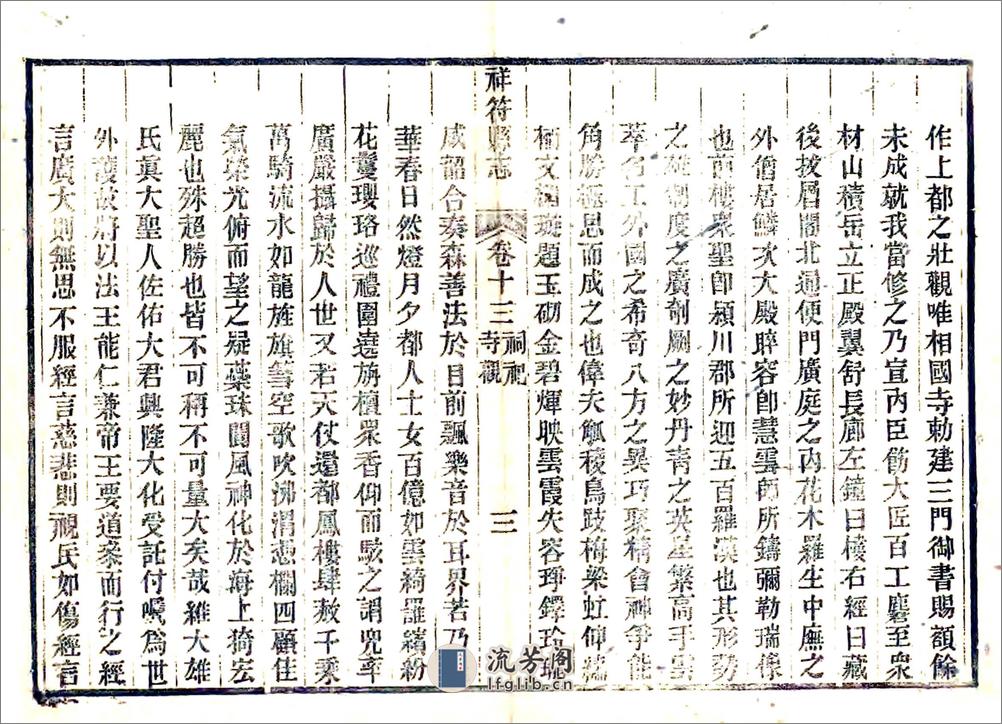 作上都之壯觀唯相國寺勅建三門御書賜額餘
未成就我當修之乃宣內臣飭大匠百工麏至衆
材山積岳立正殿翼舒長廊左鐘曰樓右經曰藏
後拔層閣北通便門廣庭之內花木羅生中廡之
外僧居鱗次大殿睟容卽慧雲師所鑄彌勒瑞像
也前樓衆聖卽潁川郡所迎五百羅漢也其形勢
之雄制度之廣剞劂之妙丹靑之英星繁高手雲
萃名工外國之希奇八方之異巧聚精會神爭能
角勝極思而成之也偉夫觚稜鳥跂梅梁虹伸繡
栭文楣璇題玉砌金碧煇映雲霞失容琤鐸玲瓏
祥符縣志
卷十三 祠祀 寺觀
三
咸韶合奏森善法於目前飄樂音於耳界若乃
華春日然燈月夕都人士女百億如雲綺羅繽紛
花鬘瓔珞巡禮圍遶旃檀衆香仰而駭之謂兜率
廣嚴攝歸於人世又若天仗還都鳳樓肆赦千乘
萬騎流水如龍旌旗雪空歌吹沸渭憑欄四顧佳
氣榮光俯而望之疑蘂珠閬風神化於海上猗宏
麗也殊超勝也皆不可稱不可量大矣哉維大雄
氏眞大聖人佐佑大君興隆大化受託付囑爲世
外護故將以法王能仁兼帝王要道黍而行之經
言廣大則無思不服經言慈悲則視民如傷經言
流芳閣
lfglib.cn